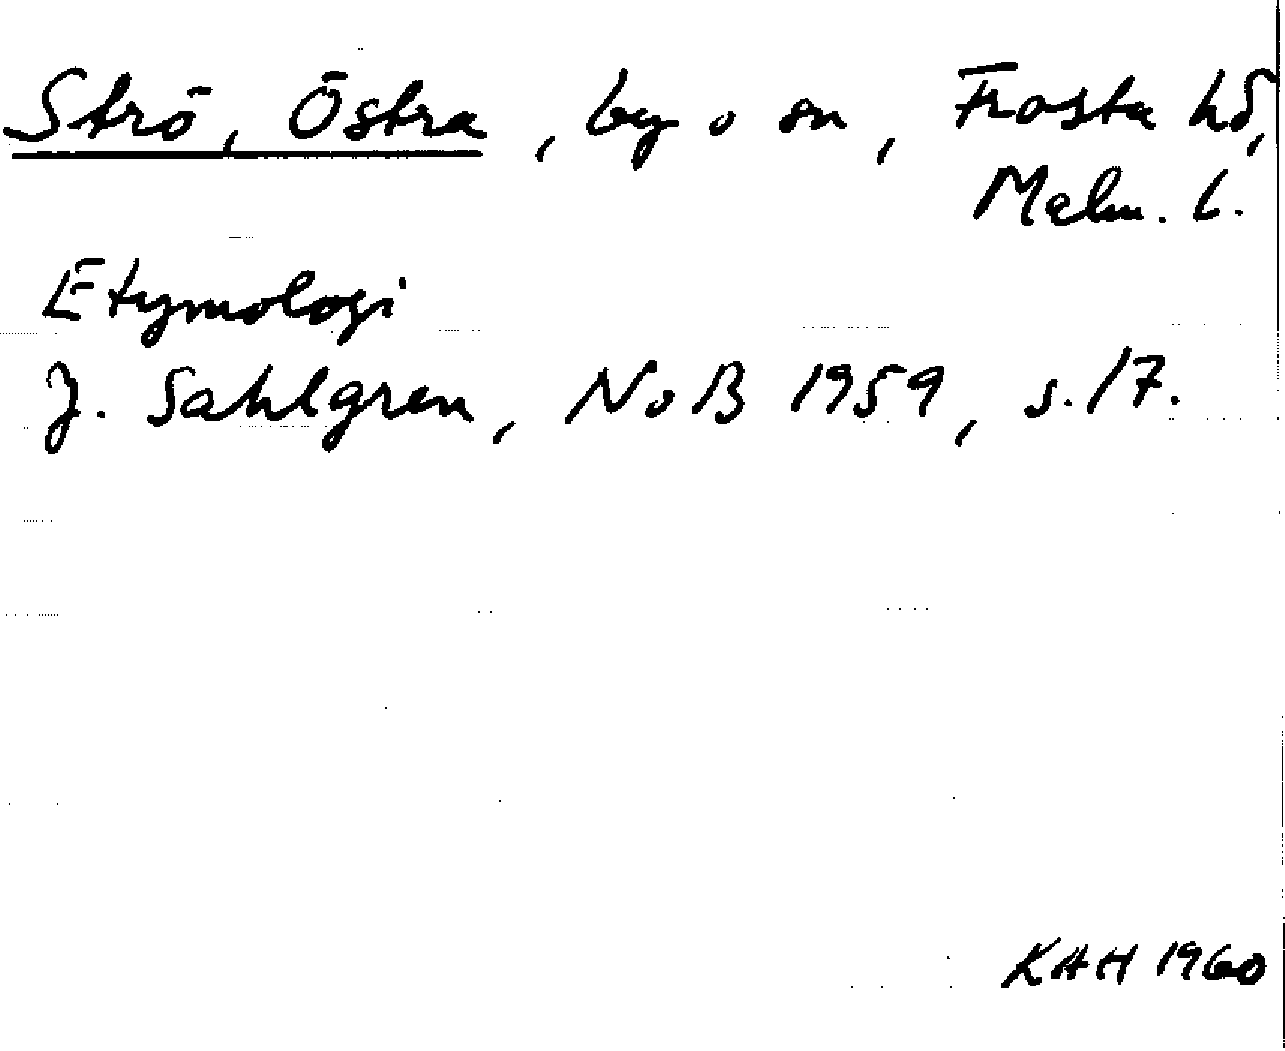 Strö, Östra, by o sn, Frosta hd,
Malm. l.
Etymologi
J. Sahlgren, NoB 1959, s. 17.
KAH 1960